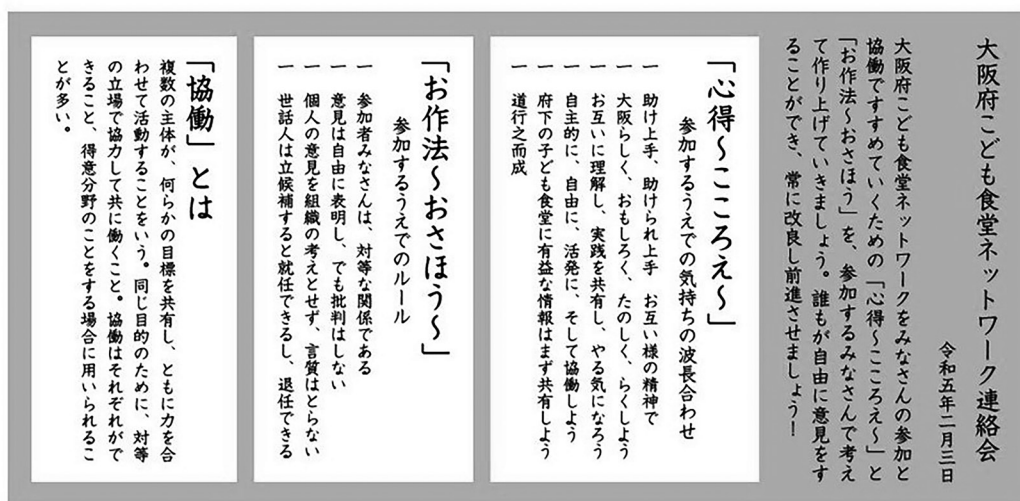 大阪府こども食堂ネットワーク連絡会
令和五年二月三日
大阪府こども食堂ネットワークをみなさんの参加と
協働ですすめていくための「心得～こころえ～」と
「お作法～おさほう」を、参加するみなさんで考え
て作り上げていきましょう。誰もが自由に意見をす
ることができ、常に改良し前進させましょう！
「心得～こころえ～」
参加するうえでの気持ちの波長合わせ
一 助け上手、助けられ上手 お互い様の精神で
一 大阪らしく、おもしろく、たのしく、らくしよう
一 お互いに理解し、実践を共有し、やる気になろう
一 自主的に、自由に、活発に、そして協働しよう
一 府下の子ども食堂に有益な情報はまず共有しよう
一 道行之而成
「お作法～おさほう～」
参加するうえでのルール
一 参加者みなさんは、対等な関係である
一 意見は自由に表明し、でも批判はしない
一 個人の意見を組織の考えとせず、言質はとらない
一 世話人は立候補すると就任できるし、退任できる
「協働」とは
複数の主体が、何らかの目標を共有し、ともに力を合
わせて活動することをいう。同じ目的のために、対等
の立場で協力して共に働くこと。協働はそれぞれがで
きること、得意分野のことをする場合に用いられるこ
とが多い。